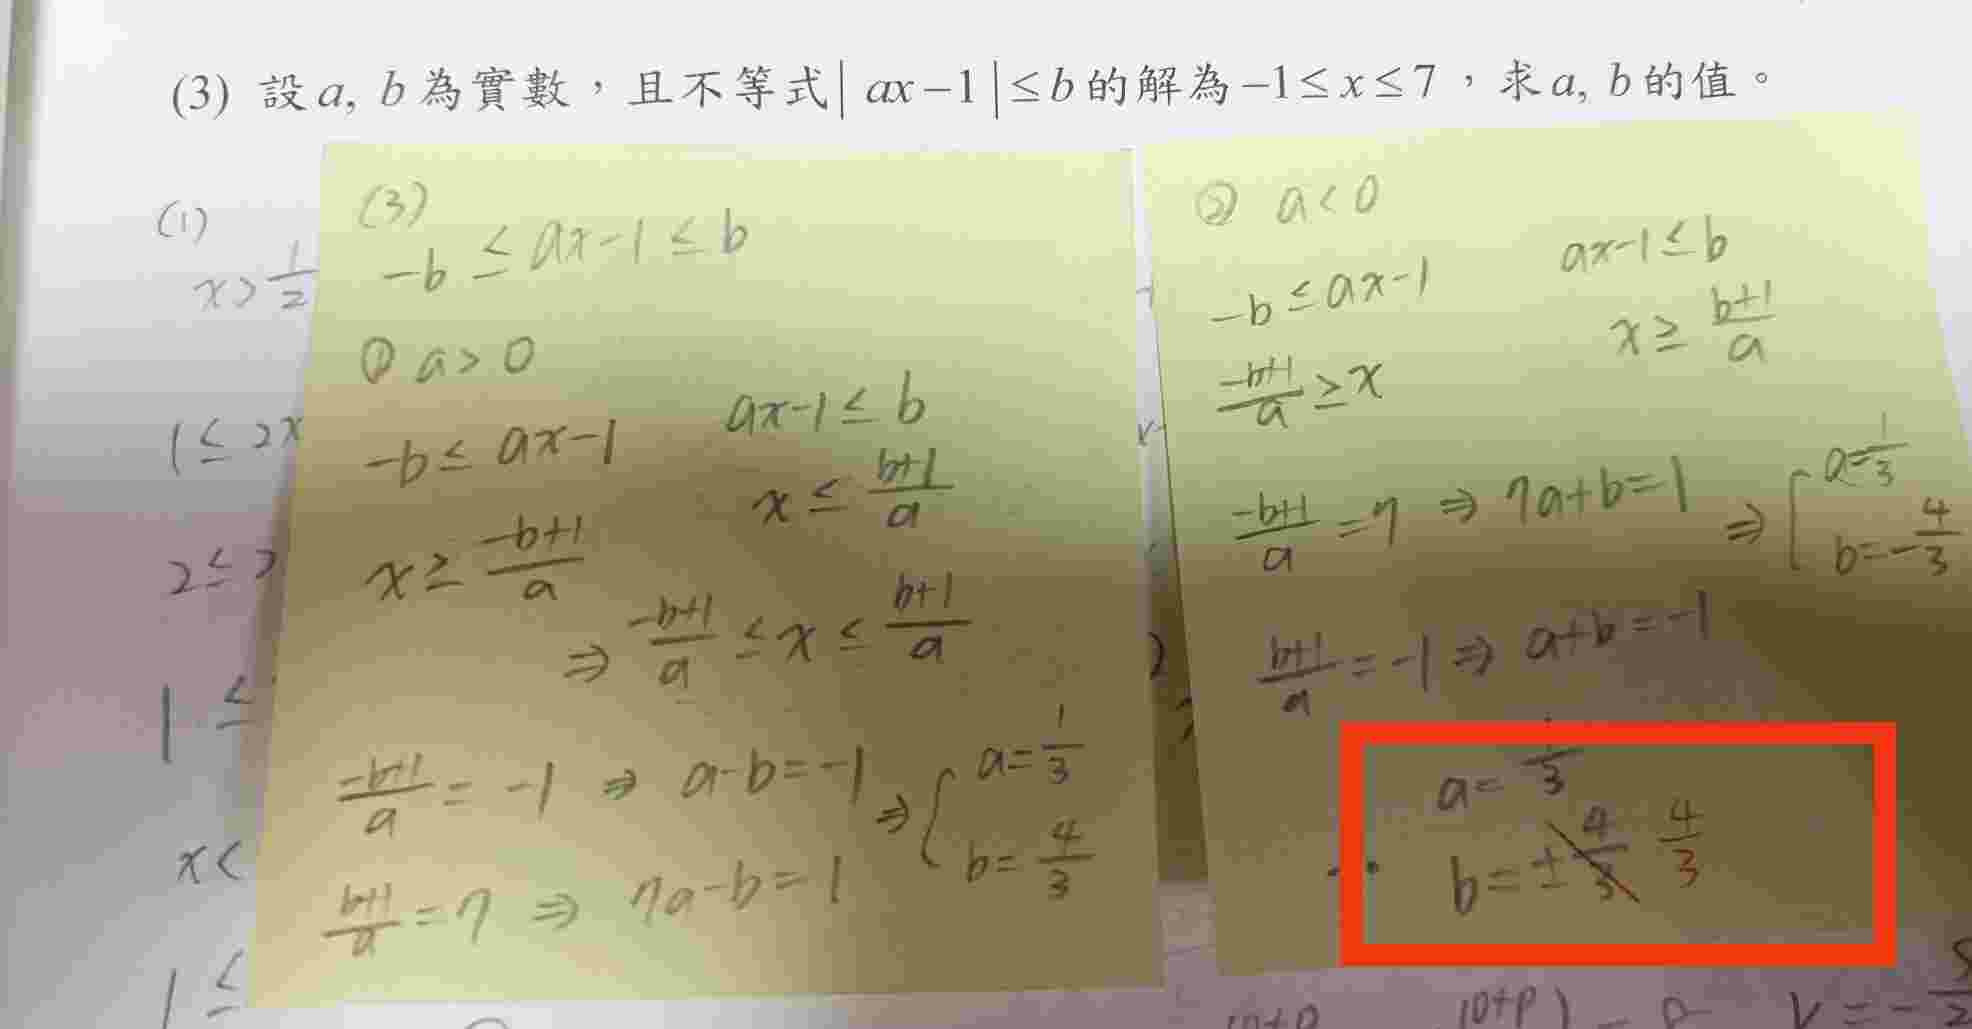 (3) 設a, b為實數，且不等式| ax−1 |≤b的解為−1≤x≤7，求a, b的值。
(1)
x>1/2
1≤2x
2≤
1≤
x<
1≤
(3)
−b≤ax−1≤b
① a>0
−b≤ax−1 ax−1≤b
x≥(−b+1)/a x≤(b+1)/a
⇒ (−b+1)/a≤x≤(b+1)/a
(−b+1)/a=−1 ⇒ a−b=−1
(b+1)/a=7 ⇒ 7a−b=1
⇒ { a=1/3
b=4/3
② a<0
−b≤ax−1 ax−1≤b
(−b+1)/a≥x x≥(b+1)/a
(−b+1)/a=7 ⇒ 7a+b=1
(b+1)/a=−1 ⇒ a+b=−1
⇒ { a=1/3
b=−4/3
a=1/3
b=±4/3 4/3